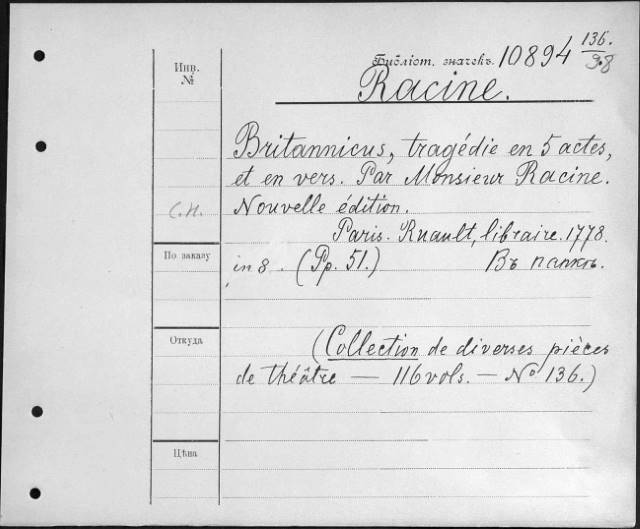 Инв.
№
Библіот. значекъ. 10894 136.
98
Racine.
Britannicus, tragédie en 5 actes,
et en vers. Par Monsieur Racine.
С.Н. Nouvelle édition.
Paris. Ruault, libraire. 1778.
По заказу
in 8. (Pp. 51.) Въ папкѣ.
Откуда
(Collection de diverses pièces
de théâtre — 116 vols. — No 136.)
Цѣна